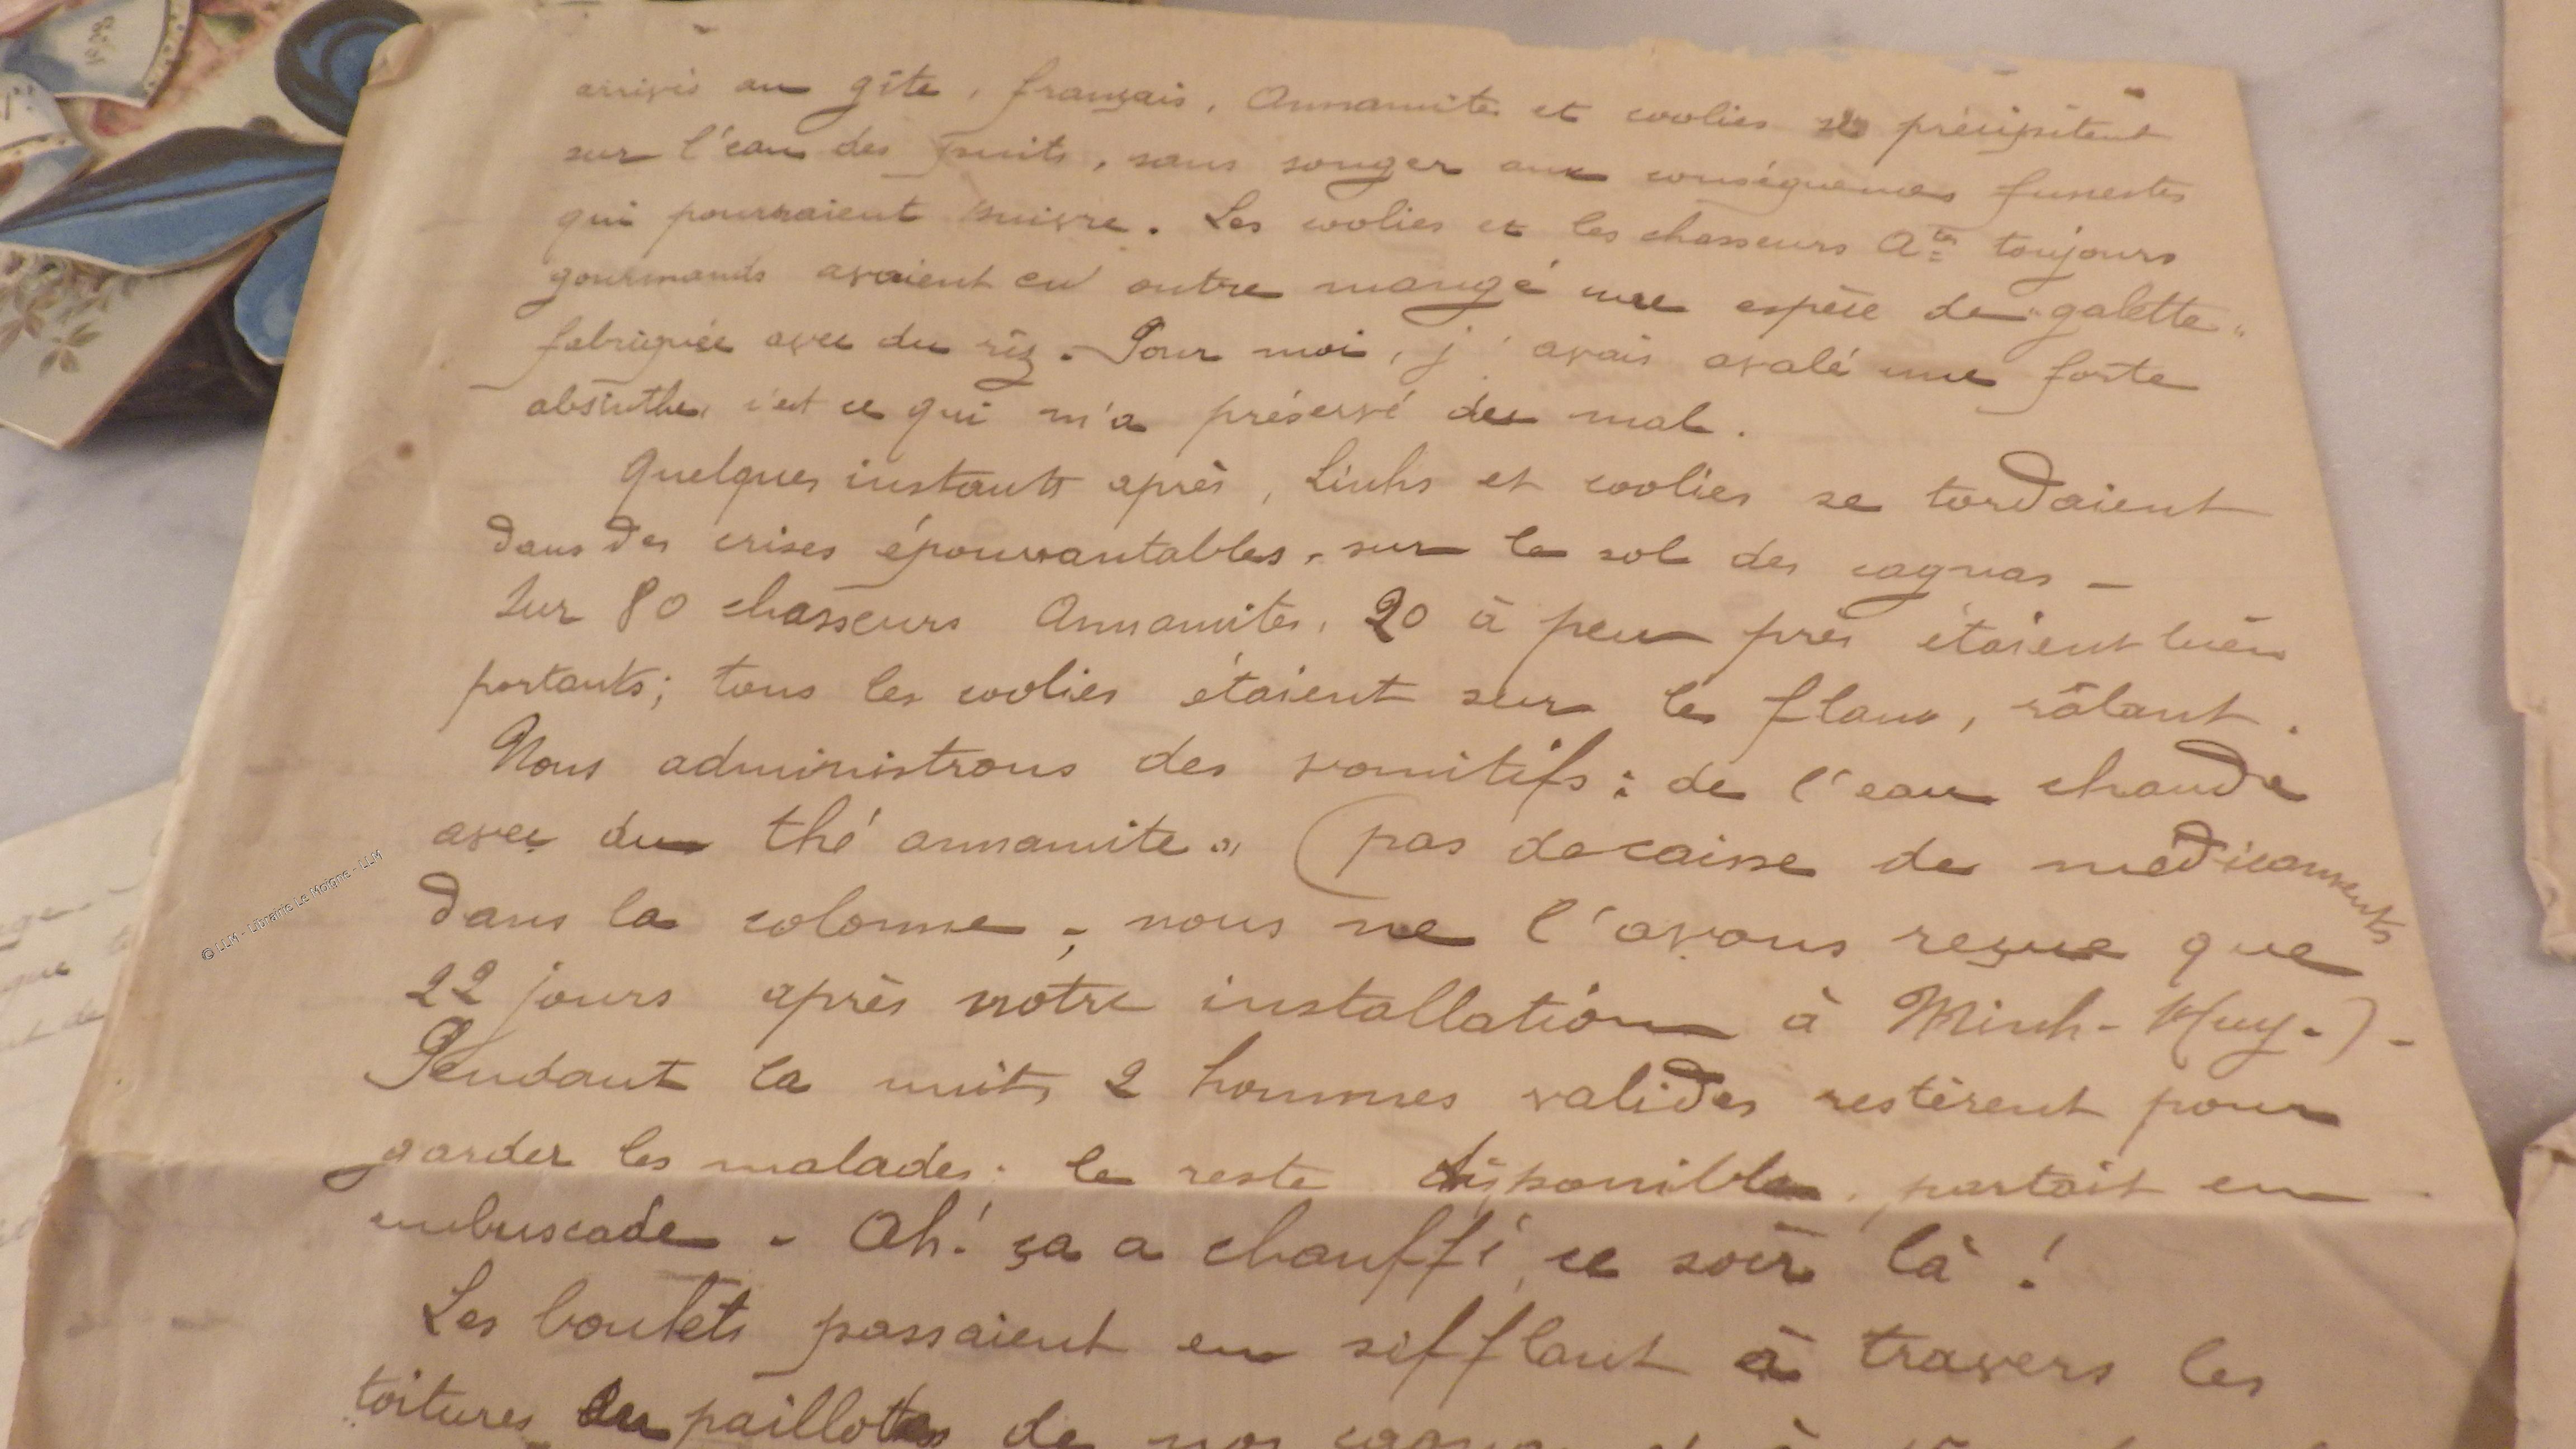 arrivés au gîte, français, Annamites et coolies se précipitent
sur l'eau des puits, sans songer aux conséquences funestes
qui pourraient suivre. Les coolies et les chasseurs Ates toujours
gourmands avaient en outre mangé une espèce de "galette"
fabriquée avec du riz. Pour moi, j'avais avalé une forte
absinthe, c'est ce qui m'a préservé du mal.
Quelques instants après, Linhs et coolies se tordaient
dans des crises épouvantables, sur le sol des cagnas -
Sur 80 chasseurs Annamites, 20 à peu près étaient bien
portants; tous les coolies étaient sur le flanc, râlant.
Nous administrons des vomitifs: de l'eau chaude
avec du thé annamite" (pas de caisse de médicaments
dans la colonne; nous ne l'avons reçue que
22 jours après notre installation à Minh-Huy.) -
Pendant la nuit, 2 hommes valides restèrent pour
garder les malades: le reste disponible, partait en
embuscade - Ah! ça a chauffé, ce soir là!
Les boulets passaient en sifflant à travers les
toitures en paillottes de nos
© LLM - Librairie Le Moigne - LLM